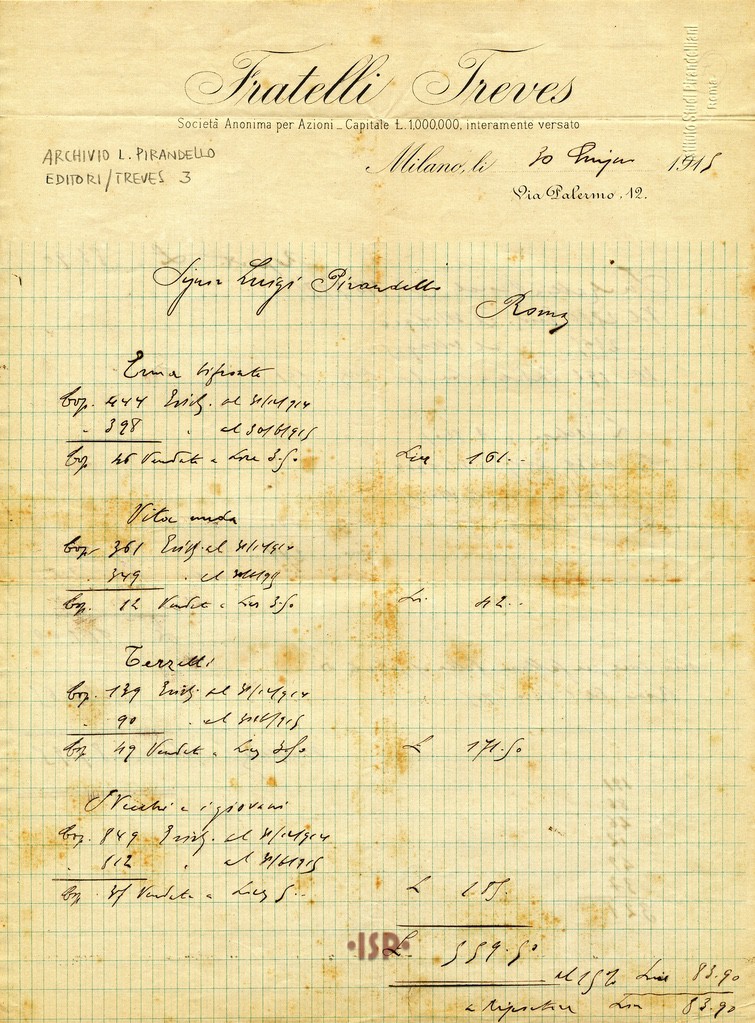 Fratelli Treves
Società Anonima per Azioni _ Capitale Ł. 1.000,000, interamente versato
Istituto Studi Pirandelliani
Roma
ARCHIVIO L. PIRANDELLO
EDITORI/TREVES 3
Milano, li 30 Giugno 1915
Via Palermo, 12.
Signor Luigi Pirandello
Roma
Erma bifronte
Cop. 444 Esist. al 31/12/914
" 398 " al 30/6/915
Cop. 46 Vendute a Lire 3.50 Lire 161..
Vita nuda
Cop. 361 Esist. al 31/12/914
" 349 " al
Cop. 12 Vendute a Lire 3.50 42..
Terzetti
Cop. 139 Esist. al 31/12/914
" 90 " al 30/6/915
Cop. 49 Vendute a Lire 3.50 L 171.50
I Vecchi e i giovani
Cop. 849 Esist. al 31/12/914
" 812 " al 30/6/915
Cop. 37 Vendute a Lire 5.. L 185.
•ISP•
L. 559.50
al 15% Lire 83.90
a Riportare Lire 83.90